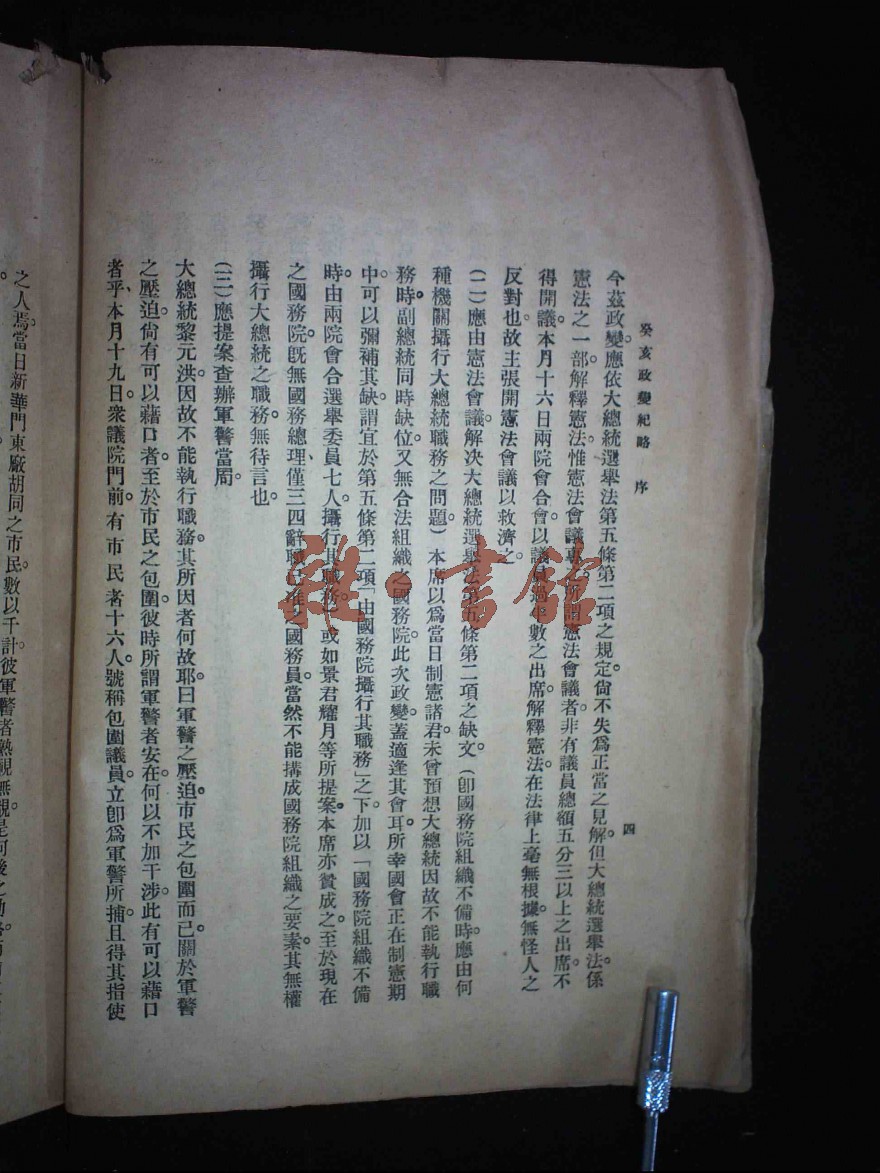 癸亥政變紀略　序
四
今茲政變。應依大總統選舉法第五條第二項之規定。尙不失爲正當之見解。但大總統選舉法。係
憲法之一部。解釋憲法。惟憲法會議專。所謂憲法會議者。非有議員總額五分三以上之出席。不
得開議。本月十六日兩院會合會。以議員過半數之出席。解釋憲法。在法律上毫無根據。無怪人之
反對也。故主張開憲法會議以救濟之。
(二)應由憲法會議。解决大總統選舉法第五條第二項之缺文。(卽國務院組織不備時。應由何
種機關攝行大總統職務之問題)本席以爲當日制憲諸君。未曾預想大總統因故不能執行職
務時。副總統同時缺位。又無合法組織之國務院。此次政變。蓋適逢其會耳。所幸國會正在制憲期
中。可以彌補其缺。謂宜於第五條第二項「由國務院攝行其職務」之下。加以「國務院組織不備
時。由兩院會合選舉委員七人。攝行其職務」或如景君耀月等所提案。本席亦贊成之。至於現在
之國務院。旣無國務總理。僅三四辭職已准之國務員。當然不能搆成國務院組織之要素。其無權
攝行大總統之職務。無待言也。
(三)應提案查辦軍警當局。
大總統黎元洪。因故不能執行職務。其所因者何故耶。曰軍警之壓迫。市民之包圍而已。關於軍警
之壓迫。尙有可以藉口者。至於市民之包圍。彼時所謂軍警者安在。何以不加干涉。此有可以藉口
者乎。本月十九日。衆議院門前。有市民者十六人。號稱包圍議員。立卽爲軍警所捕。且得其指使
之人焉。當日新華門東廠胡同之市民。數以千計。彼軍警者熟視無覩。是何